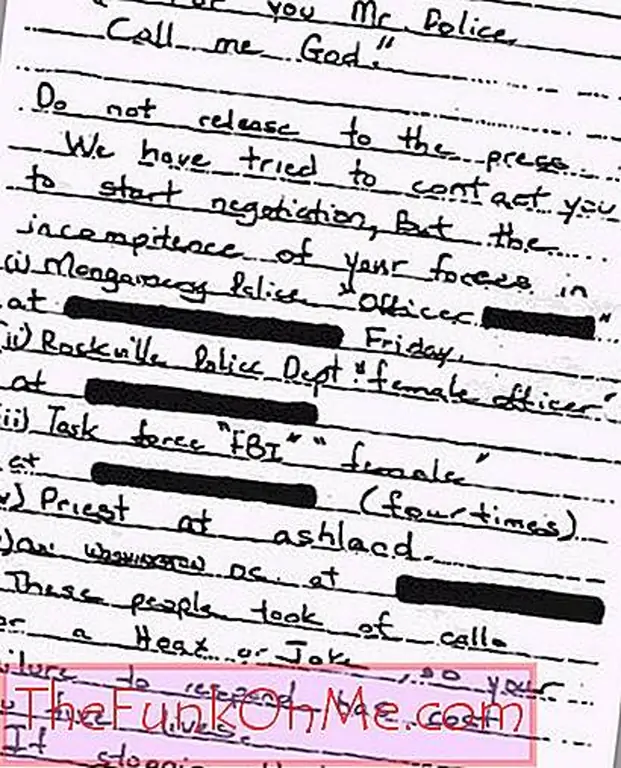 you Mr. Police
Call me God."
Do not release to the press.
We have tried to contact you
to start negotiation, But the
incompitence of your forces in
(i) Police "Officer "
at Friday.
ii) Rockville Police Dept. "female officer"
at
iii) Task force "FBI" "female"
at (four times)
v) Priest at ashland.
DC. at
These people took of calls
or a Hoax or Joke, so your
ailure to respond has cost
u five lives.
If stopping
TheFunkOnMe.com